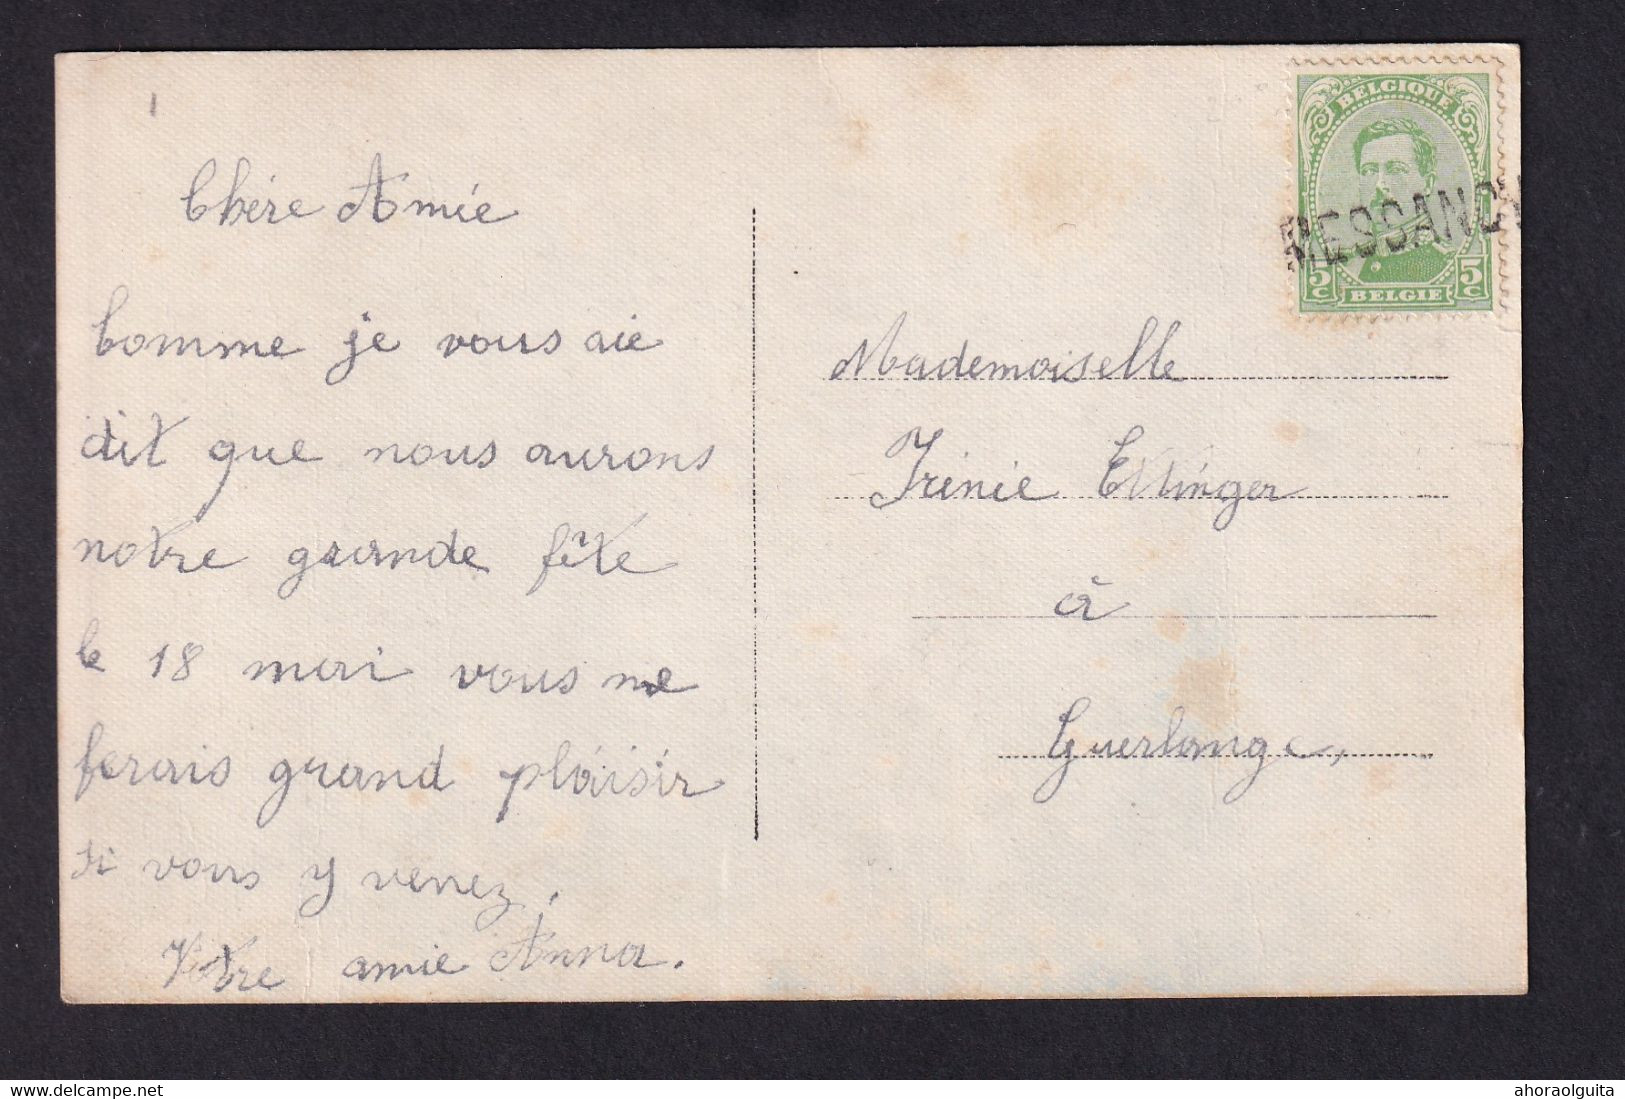 Chère Amie
Comme je vous aie
dit que nous aurons
notre grande fête
le 18 mai vous me
ferais grand plaisir
si vous y venez.
Votre amie Anna.
BELGIQUE
MESSANCY
5c 5c
BELGIE
Mademoiselle
Irénie Ettinger
à
Guerlange,
delcampe.net
ahoraolguita